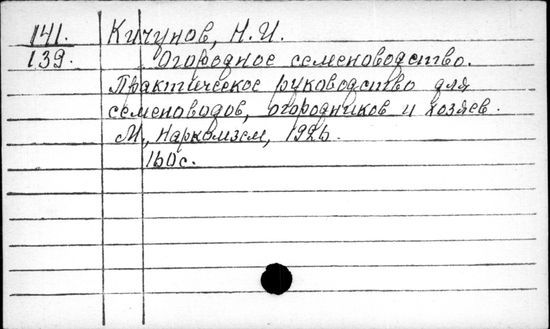 141. Кичунов, Н.И.
139. Огородное семеноводство.
Практическое руководство для
семеноводов, огородников и хозяев.
М., Наркомзем, 1926.
160с.